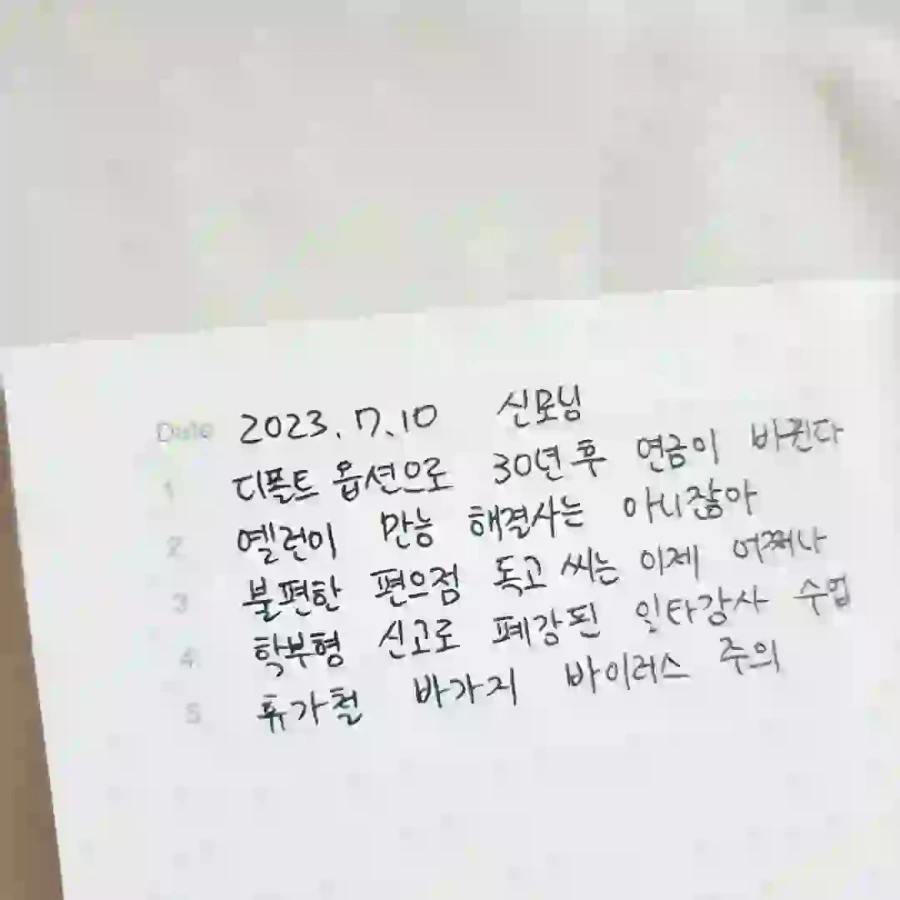 Date 2023.7.10 신모님
1 디폴트 옵션으로 30년 후 연금이 바뀐다
2 옐런이 만능 해결사는 아니잖아
3 불편한 편의점 독고 씨는 이제 어쩌나
4 학부형 신고로 폐강된 일타강사 수업
5 휴가철 바가지 바이러스 주의